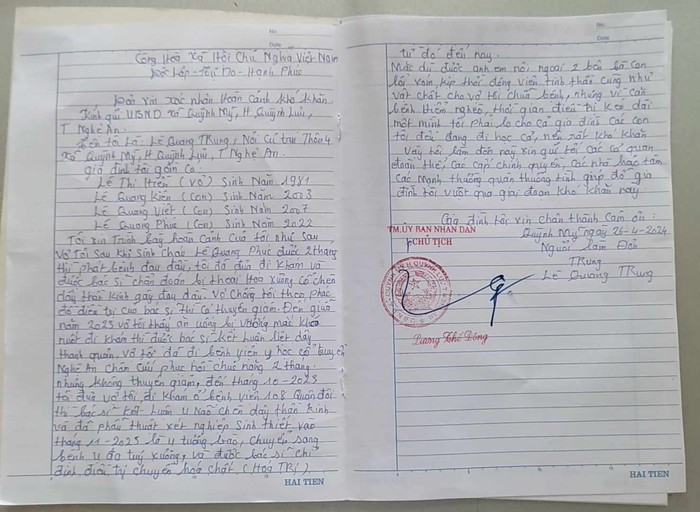 Cộng Hoà Xã Hội Chủ Nghĩa Việt Nam
Độc Lập - Tự Do - Hạnh Phúc
Đơn Xin xác nhận Hoàn Cảnh khó khăn
Kính gửi UBND xã Quỳnh Mỹ, H Quỳnh Lưu,
T Nghệ An.
Tên tôi Là: Lê Quang TRung, Nơi Cư trú Thôn 4
Xã Quỳnh Mỹ, H Quỳnh Lưu, T Nghệ An.
gia đình tôi gồm Có:
Lê Thị Hiền (Vợ) Sinh Năm 1981
Lê Quang Kiên (Con) Sinh Năm 2003
Lê Quang Việt (Con) Sinh Năm 2007
Lê Quang Phúc (Con) Sinh Năm 2022
Tôi xin Trình bày hoàn Cảnh Của tôi như sau
Vợ tôi Sau khi Sinh cháu Lê Quang Phúc được 2 tháng
thì phát bệnh đau đầu, tôi đã đưa đi khám và
được bác sĩ chẩn đoán bị thoái Hoá Xương cổ chèn
dây thần Kinh gây đau đầu. Vợ Chồng tôi theo phác
đồ điều trị của bác sĩ thì có thuyên giảm. Đến giữa
năm 2023 vợ tôi thấy ăn uống bị Vướng mắc khó
nuốt đi khám thì được bác sĩ kết luận liệt dây
thanh quản. Vợ tôi đã đi bệnh viện y học cổ truyền
Nghệ An châm cứu phục hồi chức năng 2 tháng
nhưng không thuyên giảm, đến tháng 10-2023
tôi đưa vợ tôi đi khám ở bệnh viện 108 Quân đội
thì bác sĩ kết luận U Não chèn dây thần kinh
và đã phẫu thuật xét nghiệp Sinh thiết vào
tháng 11-2023 là u tương bào, chuyển sang
bệnh u đa tuỷ xương, và được bác sĩ chỉ
định điều trị chuyền hoá chất. (Hoá TRị).
HAI TIEN
No:
Date
từ đó đến nay.
Mặc dù được anh em nội, ngoại 2 bên bà con
lối xóm, kịp thời động viên tinh thần cũng như
vật chất cho vợ tôi chữa bệnh, nhưng vì căn
bệnh hiểm nghèo, thời gian điều trị kéo dài
một mình tôi phải lo cho cả gia đình các con
tôi đều đang đi học cả, nên rất khó khăn
Vậy tôi làm đơn này xin gửi tới các cơ quan
đoàn thể, các cấp chính quyền, các nhà hảo tâm
các mạnh thường quân thương tình giúp đỡ gia
đình tôi vượt qua giai đoạn khó khăn này.
Gia đình tôi xin chân thành cảm ơn:
Quỳnh Mỹ ngày 26-4-2024
TM.ỦY BAN NHÂN DÂN
CHỦ TỊCH
Người làm Đơn
TRung
Lê Quang TRung
HAI TIEN